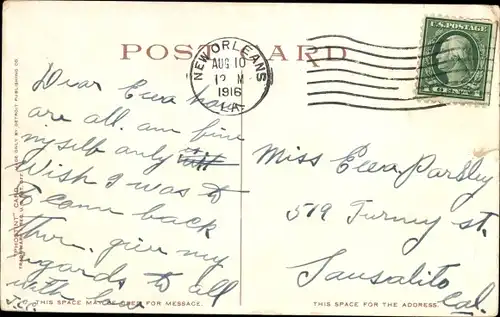 POST CARD
NEW ORLEANS
AUG 10
12 M
1916
LA.
U.S. POSTAGE
1 CENT 1
Dear Eeva how
are all. am fine
myself only
Wish I was to
to come back
ther. give my
regards to all
with love
J.C.R.
Miss Eeva Partley
519 Turney st.
Sausalito
Cal.
"PHOSTINT" CARD
THIS SPACE MAY BE USED FOR MESSAGE.
THIS SPACE FOR THE ADDRESS.